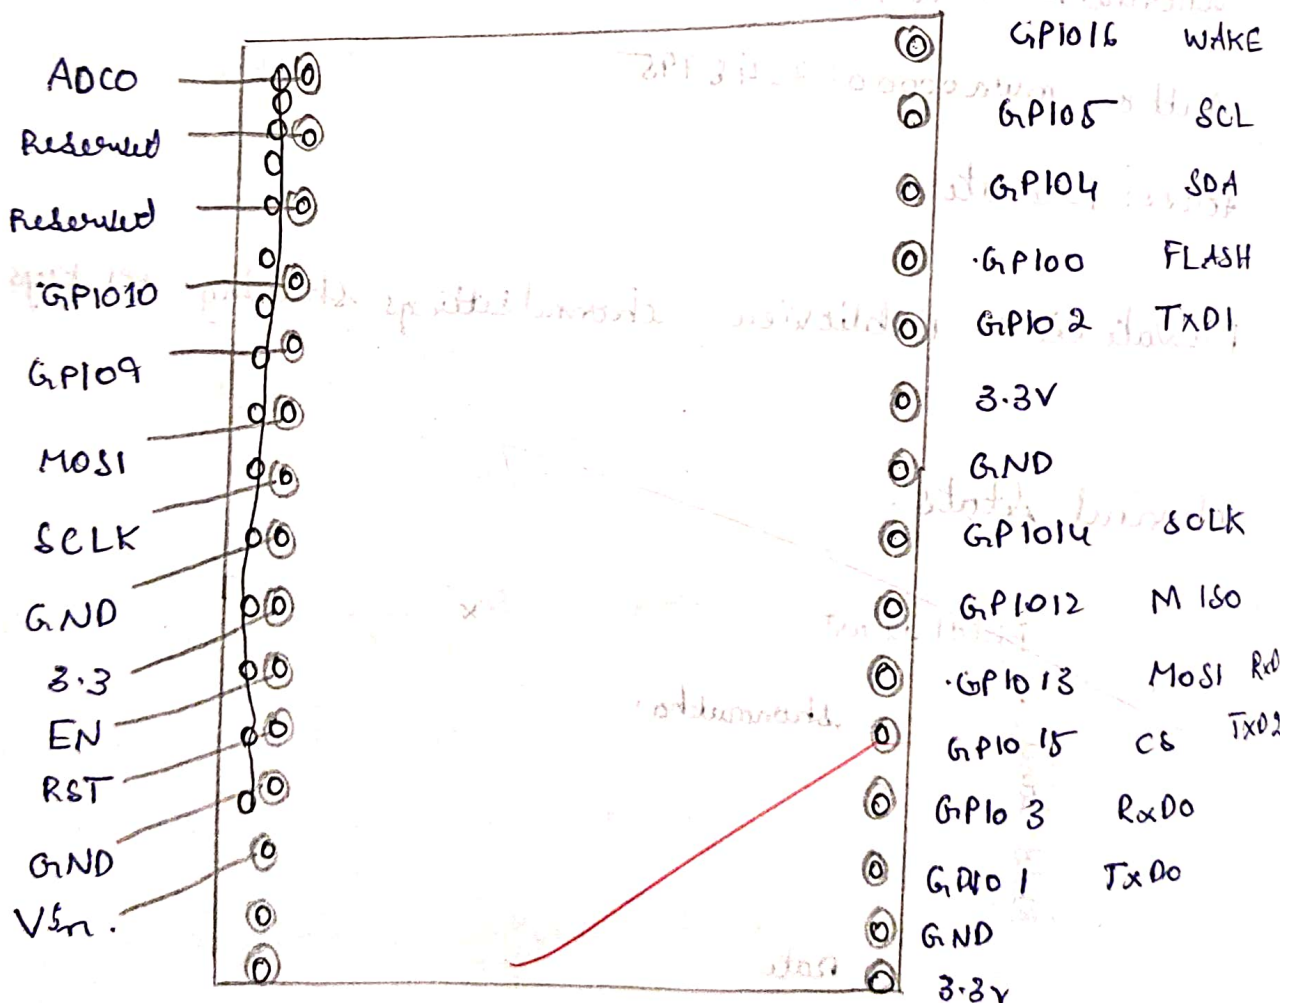 ADCO
Reserved
Reserved
GPIO10
GPIO9
MOSI
SCLK
GND
3.3
EN
RST
GND
Vin.
GPIO16 WAKE
GPIO5 SCL
GPIO4 SDA
GPIO0 FLASH
GPIO2 TXD1
3.3V
GND
GPIO14 SCLK
GPIO12 MISO
GPIO13 MOSI RxD
GPIO15 CS TXD2
GPIO3 RxD0
GPIO1 TxD0
GND
3.3V